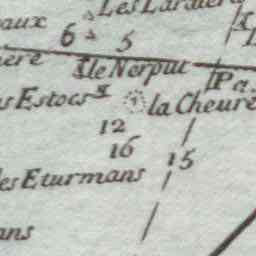 Les Lardiers
aux
6 5
ere
Ile Nerpuc
Pa
s Estocs
la Cheure
12
16
15
les Eturmans
ans